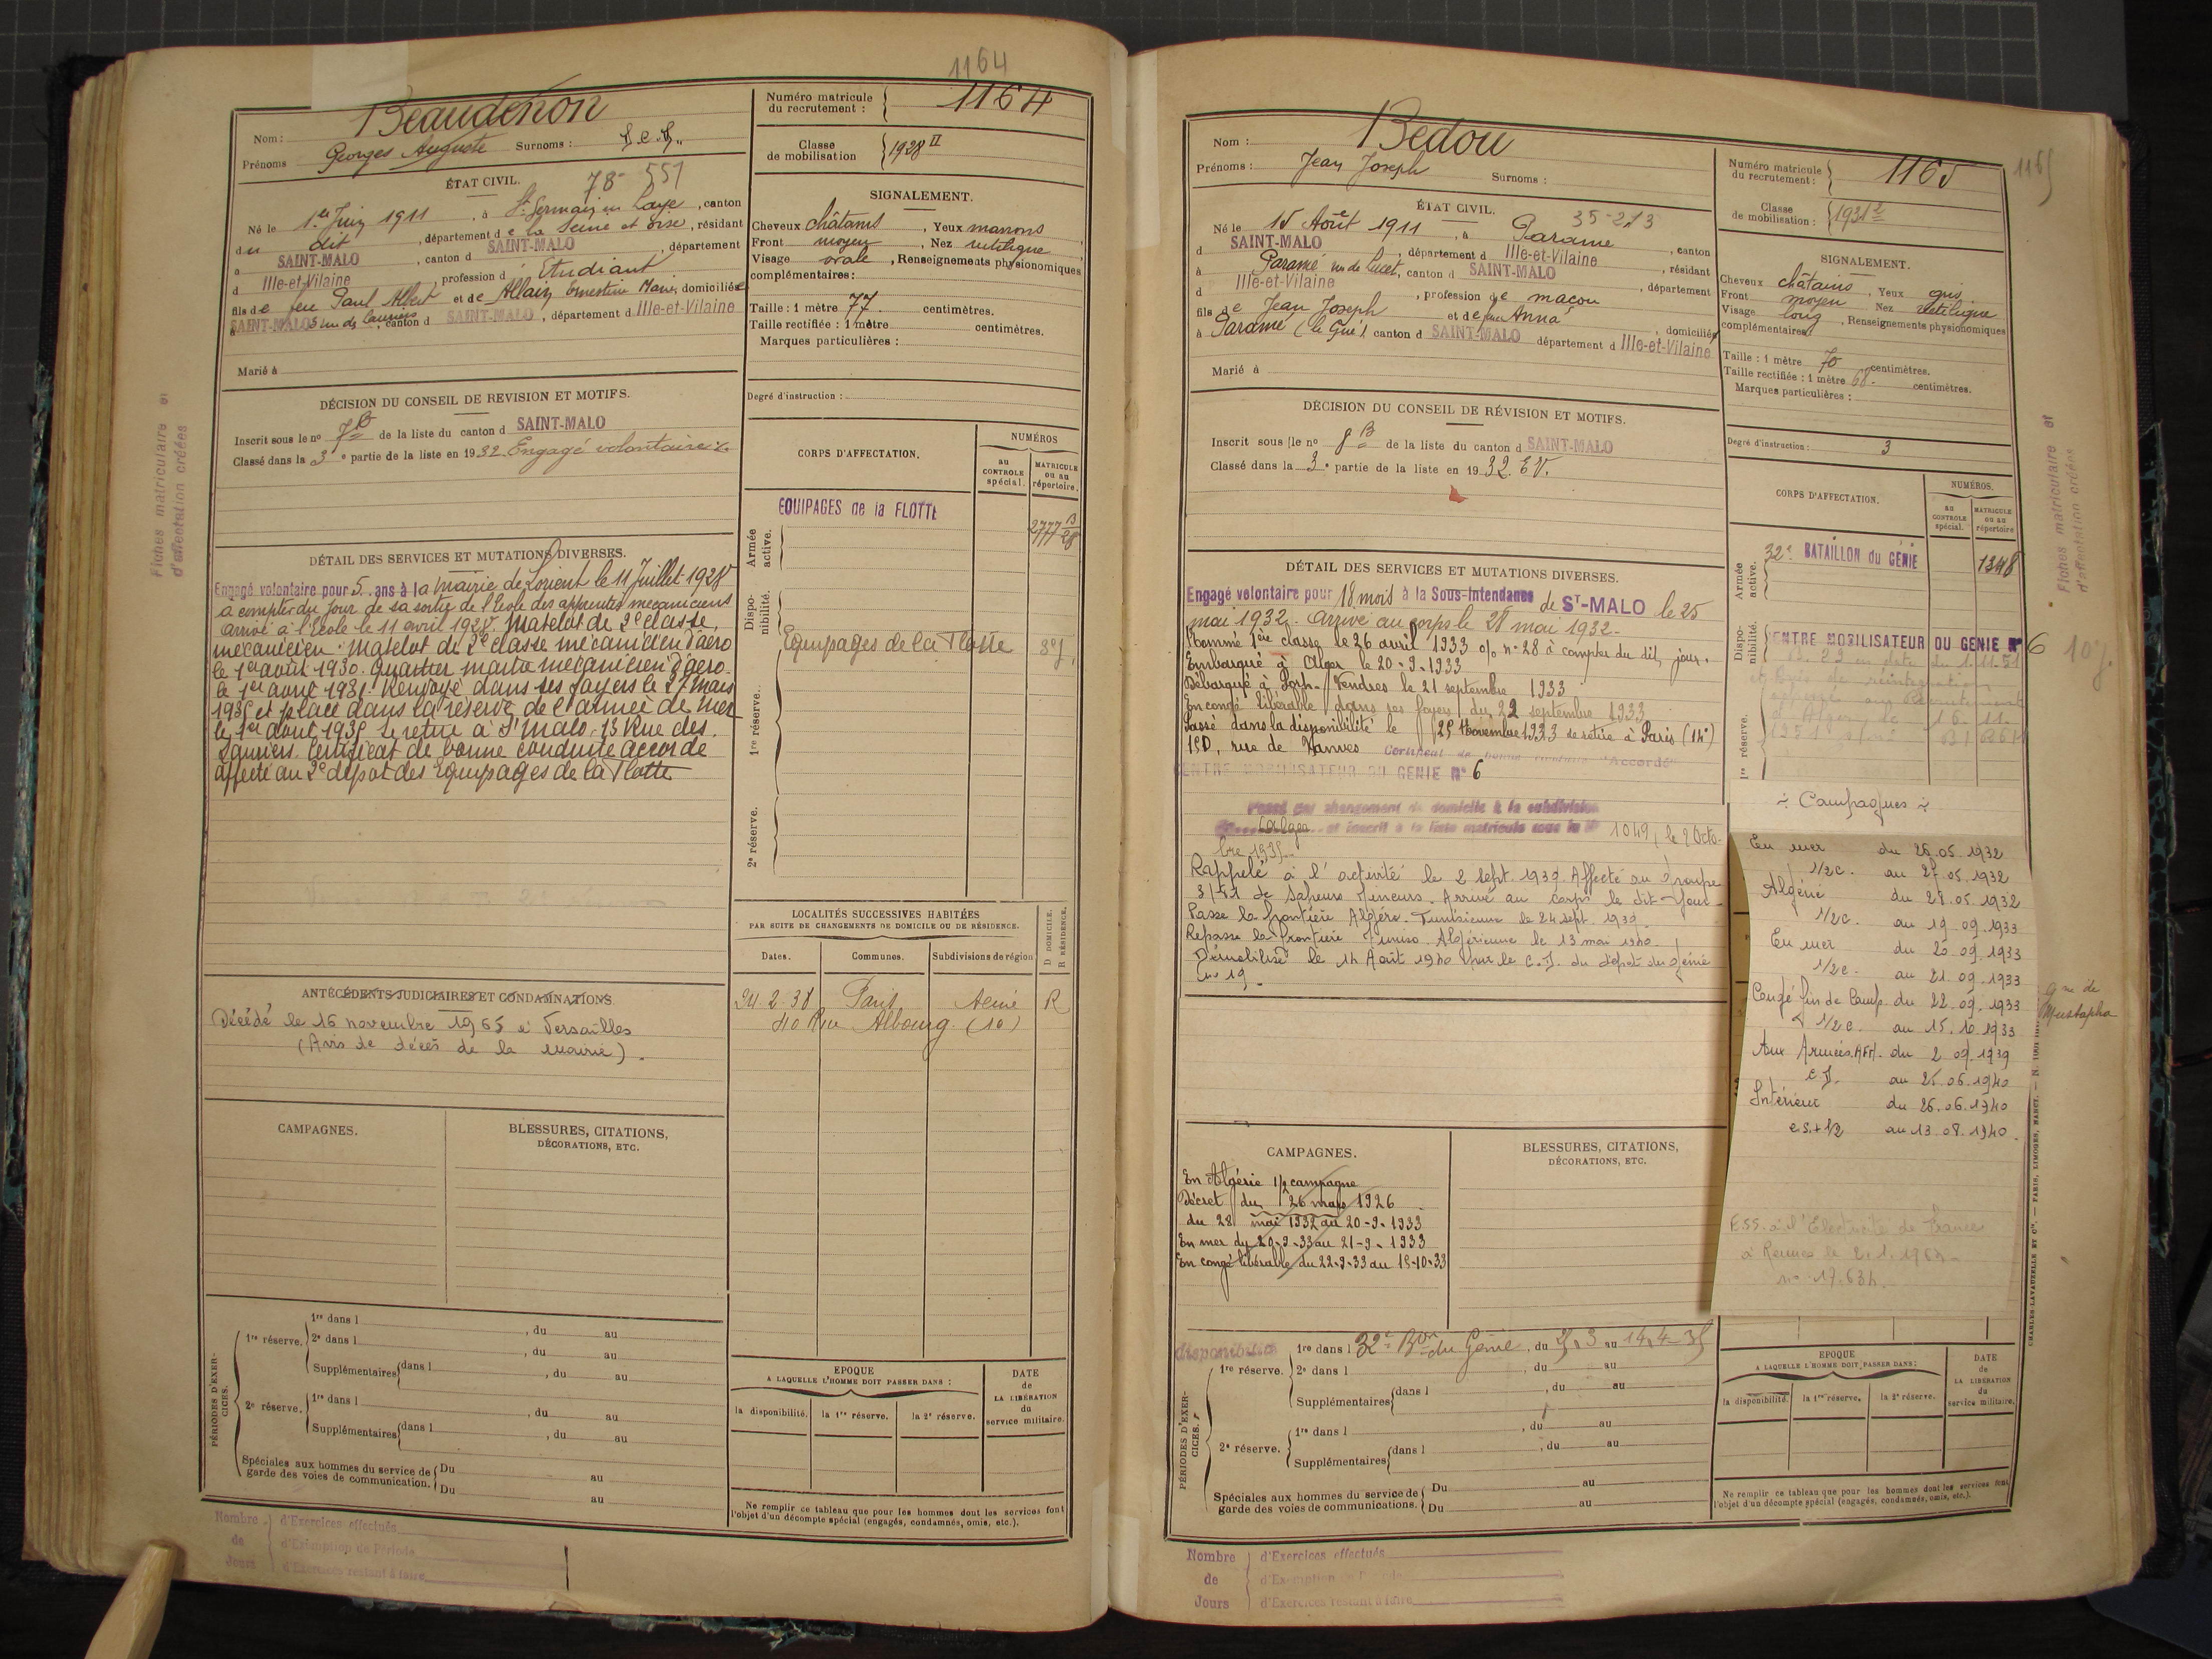 1164
Nom : Beaudenon
Prénoms Georges Auguste Surnoms :
Numéro matricule du recrutement : 1164
Classe de mobilisation 1928 II
ÉTAT CIVIL. 78-551
Né le 1er Juin 1911, à St Germain en Laye, canton
du dit, département de la Seine et Oise, résidant
à SAINT-MALO, canton d SAINT-MALO, département
d Ille-et-Vilaine, profession d' Etudiant
fils de feu Paul Albert et de Allain Ernestine Marie, domiciliés
à SAINT-MALO rue de lauriers, canton d SAINT-MALO, département d Ille-et-Vilaine
Marié à
SIGNALEMENT.
Cheveux châtains, Yeux marrons
Front moyen, Nez rectiligne
Visage ovale, Renseignements physionomiques
complémentaires :
Taille : 1 mètre 77 centimètres.
Taille rectifiée : 1 mètre centimètres.
Marques particulières :
Degré d'instruction :
DÉCISION DU CONSEIL DE REVISION ET MOTIFS.
Inscrit sous le no 7B de la liste du canton d SAINT-MALO
Classé dans la 3e partie de la liste en 1932 Engagé volontaire
CORPS D'AFFECTATION.
NUMÉROS
au CONTROLE spécial.
MATRICULE ou au répertoire.
Armée active.
EQUIPAGES de la FLOTTE
2777 B 28
Disponibilité.
Equipages de la Flotte
1re réserve.
2e réserve.
DÉTAIL DES SERVICES ET MUTATIONS DIVERSES.
Engagé volontaire pour 5 ans à la mairie de Lorient le 11 Juillet 1928
à compter du jour de sa sortie de l'Ecole des apprentis mecaniciens
arrivé à l'école le 11 avril 1928. Matelot de 2e classe,
mécanicien. Matelot de 2e classe mécanicien d'aéro
le 1er août 1930. Quartier maitre mécanicien d'aero
le 1er avril 1931. Renvoyé dans ses foyers le 27 Mars
1935 et placé dans la réserve de l'armée de mer
le 1er août 1935 se retire à St Malo, 13 Rue des
Lauriers. Certificat de bonne conduite accordé
affecté au 2e dépot des Equipages de la Flotte
LOCALITÉS SUCCESSIVES HABITÉES
PAR SUITE DE CHANGEMENTS DE DOMICILE OU DE RÉSIDENCE.
D DOMICILE. R RÉSIDENCE.
Dates. Communes. Subdivisions de région
24.2.38 Paris Seine R
40 Rue Albourg (10)
ANTÉCÉDENTS JUDICIAIRES ET CONDAMNATIONS.
Décédé le 16 novembre 1965 à Versailles
(Avis de décès de la mairie).
CAMPAGNES.
BLESSURES, CITATIONS,
DÉCORATIONS, ETC.
PÉRIODES D'EXERCICES.
1re réserve. 1re dans l , du au
2e dans l , du au
Supplémentaires dans l , du au
2e réserve. 1re dans l , du au
Supplémentaires dans l , du au
Spéciales aux hommes du service de garde des voies de communication. Du au
Du au
EPOQUE
A LAQUELLE L'HOMME DOIT PASSER DANS :
la disponibilité. la 1re réserve. la 2e réserve.
DATE de LA LIBÉRATION du service militaire.
Ne remplir ce tableau que pour les hommes dont les services font
l'objet d'un décompte spécial (engagés, condamnés, omis, etc.).
Nombre de Jours
d'Exercices effectués
d'Exemption de Période
d'Exercices restant à faire
Fiches matriculaire et
d'affectation créées
Nom : Bedou
Prénoms : Jean Joseph Surnoms :
Numéro matricule du recrutement : 1165
1165
Classe de mobilisation : 1931 2
ÉTAT CIVIL. 35-213
Né le 15 Août 1911, à Paramé, canton
d SAINT-MALO, département d Ille-et-Vilaine, résidant
à Paramé, canton d SAINT-MALO, département
d Ille-et-Vilaine, profession de maçon
fils de Jean Joseph et de Anna, domiciliés
à Paramé (le Gué) canton d SAINT-MALO département d Ille-et-Vilaine
Marié à
SIGNALEMENT.
Cheveux châtains, Yeux gris
Front moyen Nez rectiligne
Visage long, Renseignements physionomiques
complémentaires :
Taille : 1 mètre 70 centimètres.
Taille rectifiée : 1 mètre 68 centimètres.
Marques particulières :
Degré d'instruction : 3
DÉCISION DU CONSEIL DE RÉVISION ET MOTIFS.
Inscrit sous le no 8B de la liste du canton d SAINT-MALO
Classé dans la 3e partie de la liste en 1932 E.V.
CORPS D'AFFECTATION.
NUMÉROS.
au CONTROLE spécial.
MATRICULE ou au répertoire
Armée active.
32e BATAILLON du GÉNIE 1348
Disponibilité.
CENTRE MOBILISATEUR DU GENIE N° 6
1re réserve.
DÉTAIL DES SERVICES ET MUTATIONS DIVERSES.
Engagé volontaire pour 18 mois à la Sous-Intendance de ST-MALO le 25
mai 1932. Arrivé au corps le 28 mai 1932.
Nommé 1ère classe le 26 avril 1933 o/o n° 28 à compter du dit jour.
Embarqué à Alger le 20-9-1933
Débarqué à Port-Vendres le 21 septembre 1933
En congé libérable dans ses foyers du 22 septembre 1933
Passé dans la disponibilité le 25 Novembre 1933 se retire à Paris (14e)
150, rue de Vanves Certificat de bonne conduite "Accordé"
CENTRE MOBILISATEUR DU GENIE N° 6
Passé par changement de domicile à la subdivision
d'Alger et inscrit à la liste matricule sous le N° 1049, le 2 Octo-
bre 1935.
Rappelé à l'activité le 2 sept. 1939. Affecté au groupe
de Sapeurs Mineurs. Arrivé au corps le dit jour
Passe la frontière Algéro-Tunisienne le 24 sept. 1939
Repasse la frontière Tuniso-Algérienne le 13 mai 1940
Démobilisé le 14 Août 1940 par le C.J. du dépôt du génie
no 19.
÷ Campagnes ÷
En mer du 26.05.1932
1/2c. au 27.05.1932
Algérie du 28.05.1932
1/2c. au 19.09.1933
En mer du 20.09.1933
1/2c. au 21.09.1933
Congé fin de Camp. du 22.09.1933
1/2c. au 15.10.1933
Aux Armées AFN. du 2.09.1939
au 25.06.1940
Intérieur du 26.06.1940
au 13.08.1940.
E.S.S. à l'Electricité de France
à Rennes
Gne de Mustapha
CAMPAGNES.
En Algérie 1/2 campagne
Décret du 26 mars 1926
du 28 mai 1932 au 20-9-1933
En mer du 20-9-33 au 21-9-1933
En congé libérable du 22-9-33 au 15-10-33
BLESSURES, CITATIONS,
DÉCORATIONS, ETC.
PÉRIODES D'EXERCICES.
disponibilité
1re réserve. 1re dans l 32e Bon du Génie, du au 14-4-35
2e dans l , du au
Supplémentaires dans l , du au
2e réserve. 1re dans l , du au
Supplémentaires dans l , du au
Spéciales aux hommes du service de garde des voies de communications. Du au
Du au
EPOQUE
A LAQUELLE L'HOMME DOIT PASSER DANS :
la disponibilité. la 1re réserve. la 2e réserve.
DATE de LA LIBÉRATION du service militaire.
Ne remplir ce tableau que pour les hommes dont les services font
l'objet d'un décompte spécial (engagés, condamnés, omis, etc.).
Nombre de Jours
d'Exercices effectués
d'Exemption de Période
d'Exercices restant à faire
Fiches matriculaire et
d'affectation créées
CHARLES-LAVAUZELLE ET Cie. — PARIS, LIMOGES, NANCY.